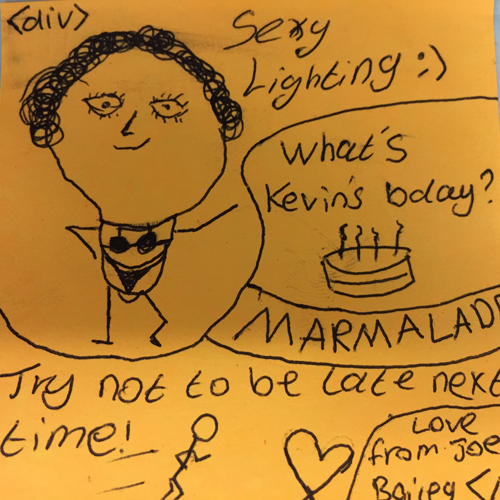 <div>
Sexy
Lighting :)
What's
Kevin's bday?
MARMALAD
Try not to be late next
time!
Love
from Joe
Bailey <